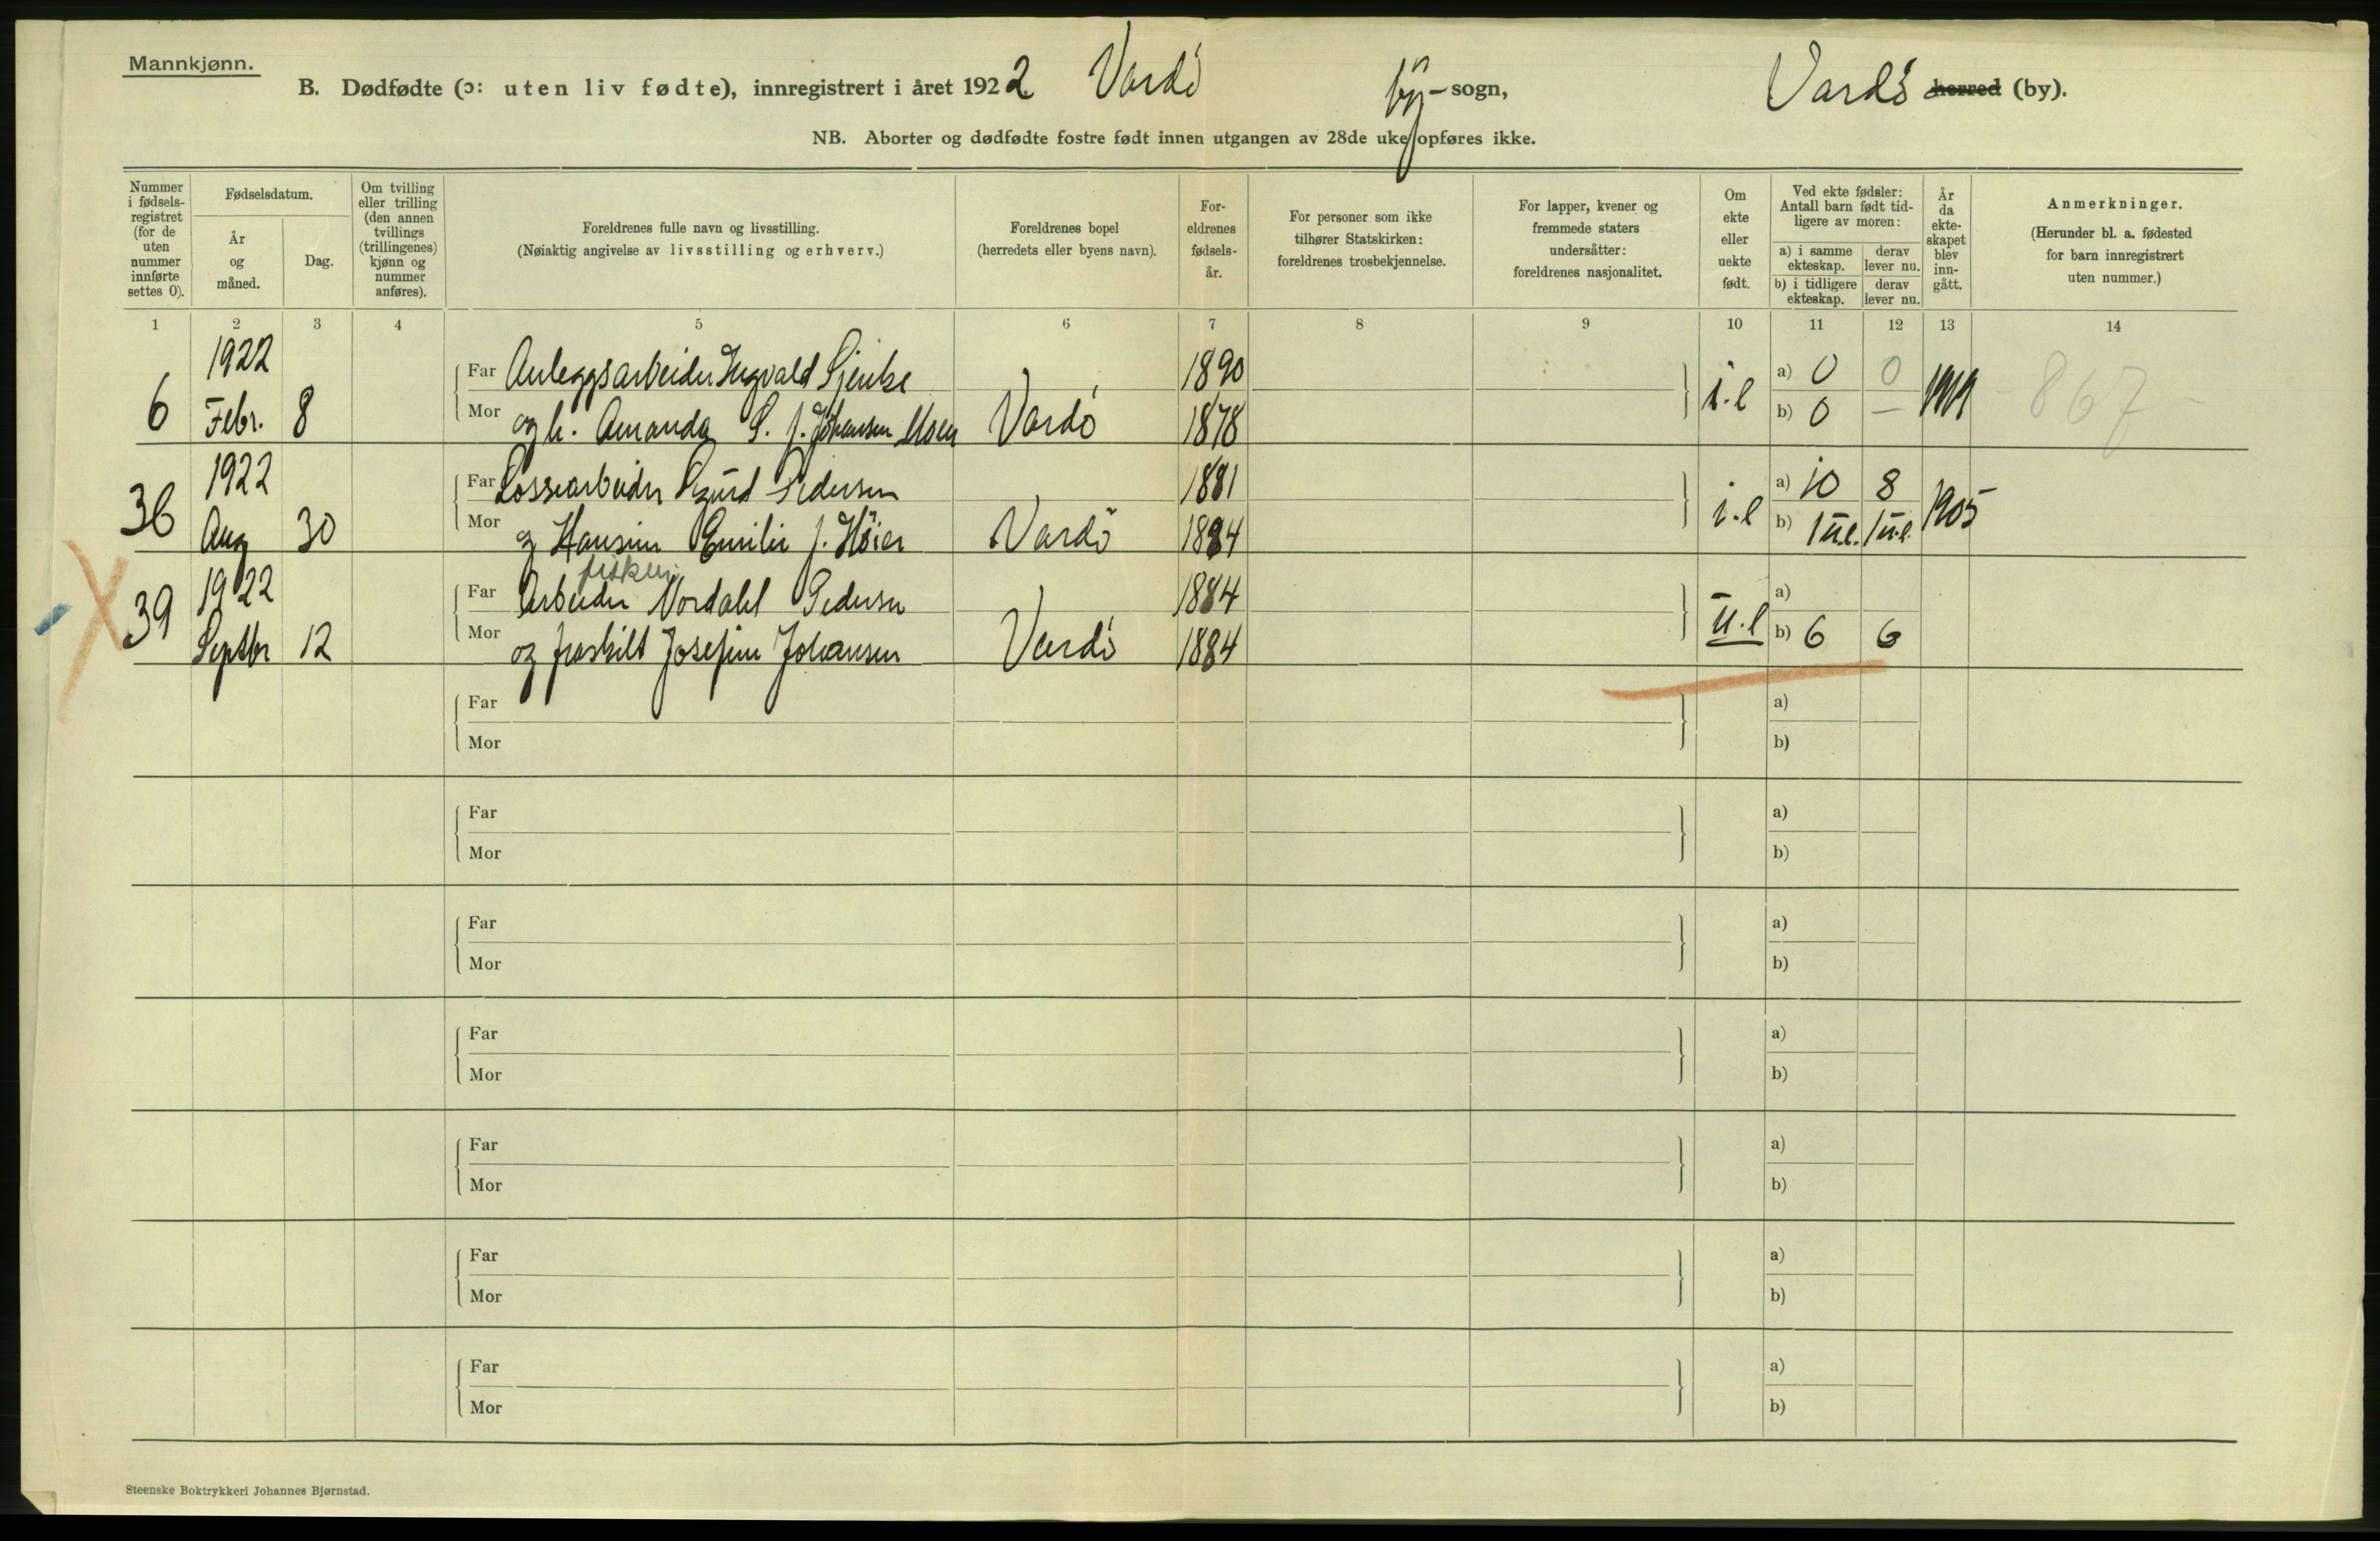 Mannkjønn.
B. Dødfødte (ɔ: uten liv fødte), innregistrert i året 1922 Vardö by- sogn, Vardö herred (by).
NB. Aborter og dødfødte fostre født innen utgangen av 28de uke opføres ikke.
Nummer
i fødsels-
registret
(for de
uten
nummer
innførte
settes 0).
Fødselsdatum.
År
og
måned.
Dag.
Om tvilling
eller trilling
(den annen
tvillings
(trillingenes)
kjønn og
nummer
anføres).
Foreldrenes fulle navn og livsstilling.
(Nøiaktig angivelse av livsstilling og erhverv.)
Foreldrenes bopel
(herredets eller byens navn).
For-
eldrenes
fødsels-
år.
For personer som ikke
tilhører Statskirken:
foreldrenes trosbekjennelse.
For lapper, kvener og
fremmede staters
undersåtter:
foreldrenes nasjonalitet.
Om
ekte
eller
uekte
født.
Ved ekte fødsler:
Antall barn født tid-
ligere av moren:
a) i samme
ekteskap.
derav
lever nu.
b) i tidligere
ekteskap.
derav
lever nu.
År
da
ekte-
skapet
blev
inn-
gått.
Anmerkninger.
(Herunder bl. a. fødested
for barn innregistrert
uten nummer.)
1 2 3 4 5 6 7 8 9 10 11 12 13 14
1922 Far Anleggsarbeider Ingvald 1890 a) 0 0
6 Febr. 8 Mor og h. Amanda S. f. Johansen Moen Vardö 1878 i.e b) 0 — 1919 867
1922 Far Lossearbeider Sigurd Pedersen 1881 a) 10 8
36 Aug 30 Mor og Hansine Emilie f. Höier Vardö 1884 i.e b) 1 u.e. 1 u.e. 1905
fisker
1922 Far Arbeider Nordahl Pedersen 1884 a)
39 Septbr 12 Mor og fraskilt Josefine Johansen Vardö 1884 u.e b) 6 6
Far a)
Mor b)
Far a)
Mor b)
Far a)
Mor b)
Far a)
Mor b)
Far a)
Mor b)
Far a)
Mor b)
Far a)
Mor b)
Steenske Boktrykkeri Johannes Bjørnstad.